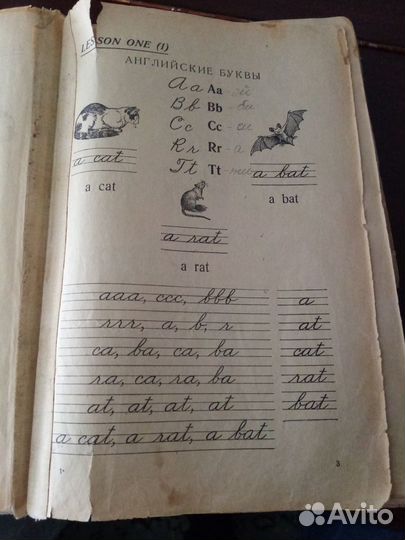 LESSON ONE (1)
АНГЛИЙСКИЕ БУКВЫ
Aa Aa - эй
Bb Bb - би
Cc Cc - си
Rr Rr - а
Tt Tt - ти
a cat
a cat
a bat
a bat
a rat
a rat
aaa, ccc, bbb
a
rrr, a, b, r
at
ca, ba, ca, ba
cat
ra, ca, ra, ba
rat
at, at, at, at
bat
a cat, a rat, a bat
1*
3
Avito